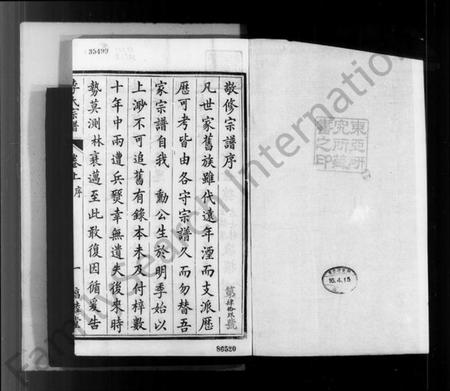 敬修宗譜序
凡世家舊族雖代遠年湮而支派歷
歷可考皆由各守宗譜久而勿替吾
家宗譜自我 勳公生於明季始以
上渺不可追舊有錄本未及付梓數
十年中兩遭兵燹幸無遺失後來時
勢莫測林衰邁至此敢復因循爰告
李氏宗譜 卷上序 一
35499
86520
東亞研
究所藏
書之印
16.4.15
FamilySearch International